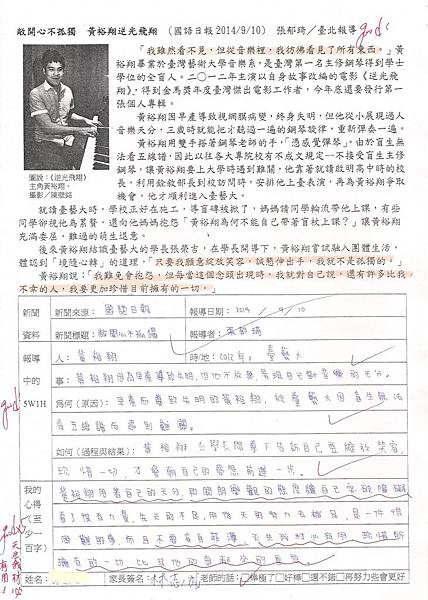 敞開心不孤獨　黃裕翔逆光飛翔　（國語日報 2014/9/10）　張郁琦／臺北報導
good!
「我雖然看不見，但從音樂裡，我彷彿看見了所有東西。」黃
裕翔畢業於臺灣藝術大學音樂系，是臺灣第一名主修鋼琴得到學士
學位的全盲人。二〇一二年主演以自身故事改編的電影《逆光飛
翔》，得到金馬獎年度臺灣傑出電影工作者，今年底還要發行第一
張個人專輯。
黃裕翔因早產導致視網膜病變，終身失明，但他從小展現過人
音樂天分，三歲時就能把才聽過一遍的鋼琴旋律，重新彈奏一遍。
黃裕翔用雙手搭著鋼琴老師的手，「憑感覺彈琴」。由於盲生無
法看五線譜，因此以往各大專院校有不成文規定－不接受盲生主修
鋼琴，讓黃裕翔要上大學時遇到難關，他靠著就讀啟明高中時的校
長，利用餘敘部長到校訪問時，安排他上臺表演，再為黃裕翔爭取
機會，他才順利進入臺藝大。
圖說：《逆光飛翔》
主角黃裕翔。
攝影／陳壁銘
就讀臺藝大時，學校正好在施工，導盲磚被掀了，媽媽請同學輪流帶他上課，有些
同學卻視他為累贅，還向他媽媽抱怨「黃裕翔為何不能自己帶著盲杖上課？」讓黃裕翔
充滿委屈，難過的萌生退意。
後來黃裕翔結識臺藝大的學長張榮吉，在學長開導下，黃裕翔嘗試融入團體生活，
體認到「境隨心轉」的道理，「只要我願意綻放笑容，誠懇伸出手，我就不是孤獨的。」
黃裕翔說：「我難免會抱怨，但每當這個念頭出現時，我就對自己說，還有許多比我
不幸的人，我要更加珍惜目前擁有的一切。」
新聞資料　新聞來源：國語日報　報導日期：2014／9／10
新聞標題：敞開心不孤獨　報導者：張郁琦
報導中的5W1H　人：黃裕翔　時/地：2012年；臺藝大
事：黃裕翔因為早產導致失明，但他不放棄，展現自己對音樂的天分。
good!
為何（原因）：早產而導致失明的黃裕翔，被臺藝大因盲生無法
看五線譜而遇到難關。
如何（過程與結果）：黃裕翔在學長開導下告訴自己要綻放笑容，
珍惜一切才會朝自己的夢想前進一步。
我的心得（至少一百字）
黃裕翔用著自己的天分和開朗樂觀的態度讓自己
克服
先天的不足，用後天的努力去補足，是一件很
困難的事，而且不要妄自菲薄，天生我材必有用，珍惜所
擁有的一切
天生我材必有用！
姓名：　家長簽名：　老師的話：□棒極了□好棒□還不錯□再努力些會更好